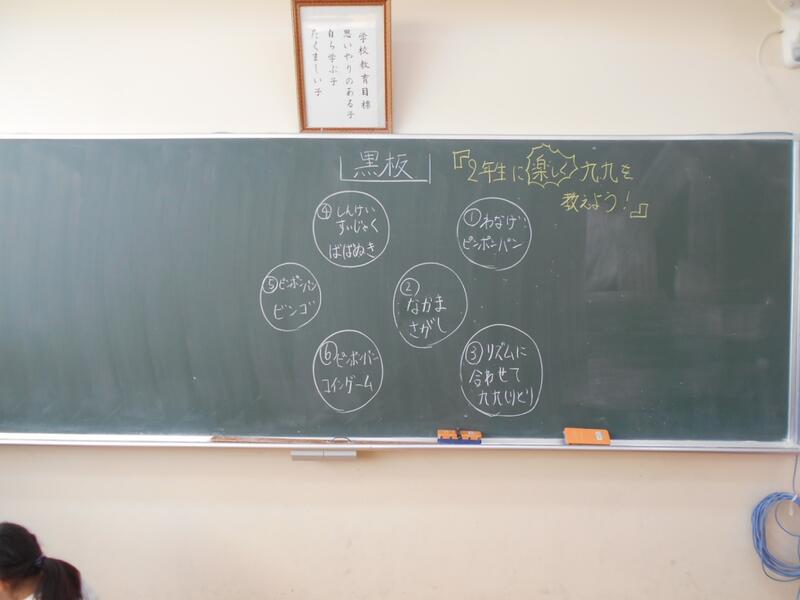 学校教育目標
思いやりのある子
自ら学ぶ子
たくましい子
黒板
『2年生に楽しく九九を
教えよう!』
①わなげ
ピンポンパン
②
なかま
さがし
③リズムに
合わせて
九九しりとり
④しんけい
すいじゃく
ばばぬき
⑤ピンポンパン
ビンゴ
⑥ピンポンパン
コインゲーム